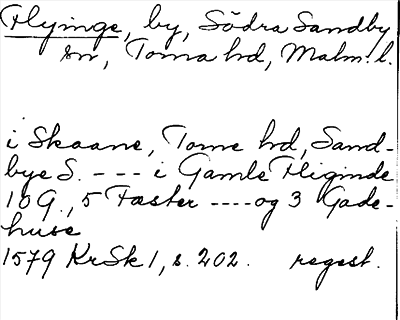 Flyinge, by, Södra Sandby
sn, Torna hd, Malm. l.
i Skaane, Torne hd, Sand-
bye S. --- i Gamle Fliginde
10 G., 5 Fæster ---- og 3 Gade-
huse
1579 KrSk 1, s. 202. regest.